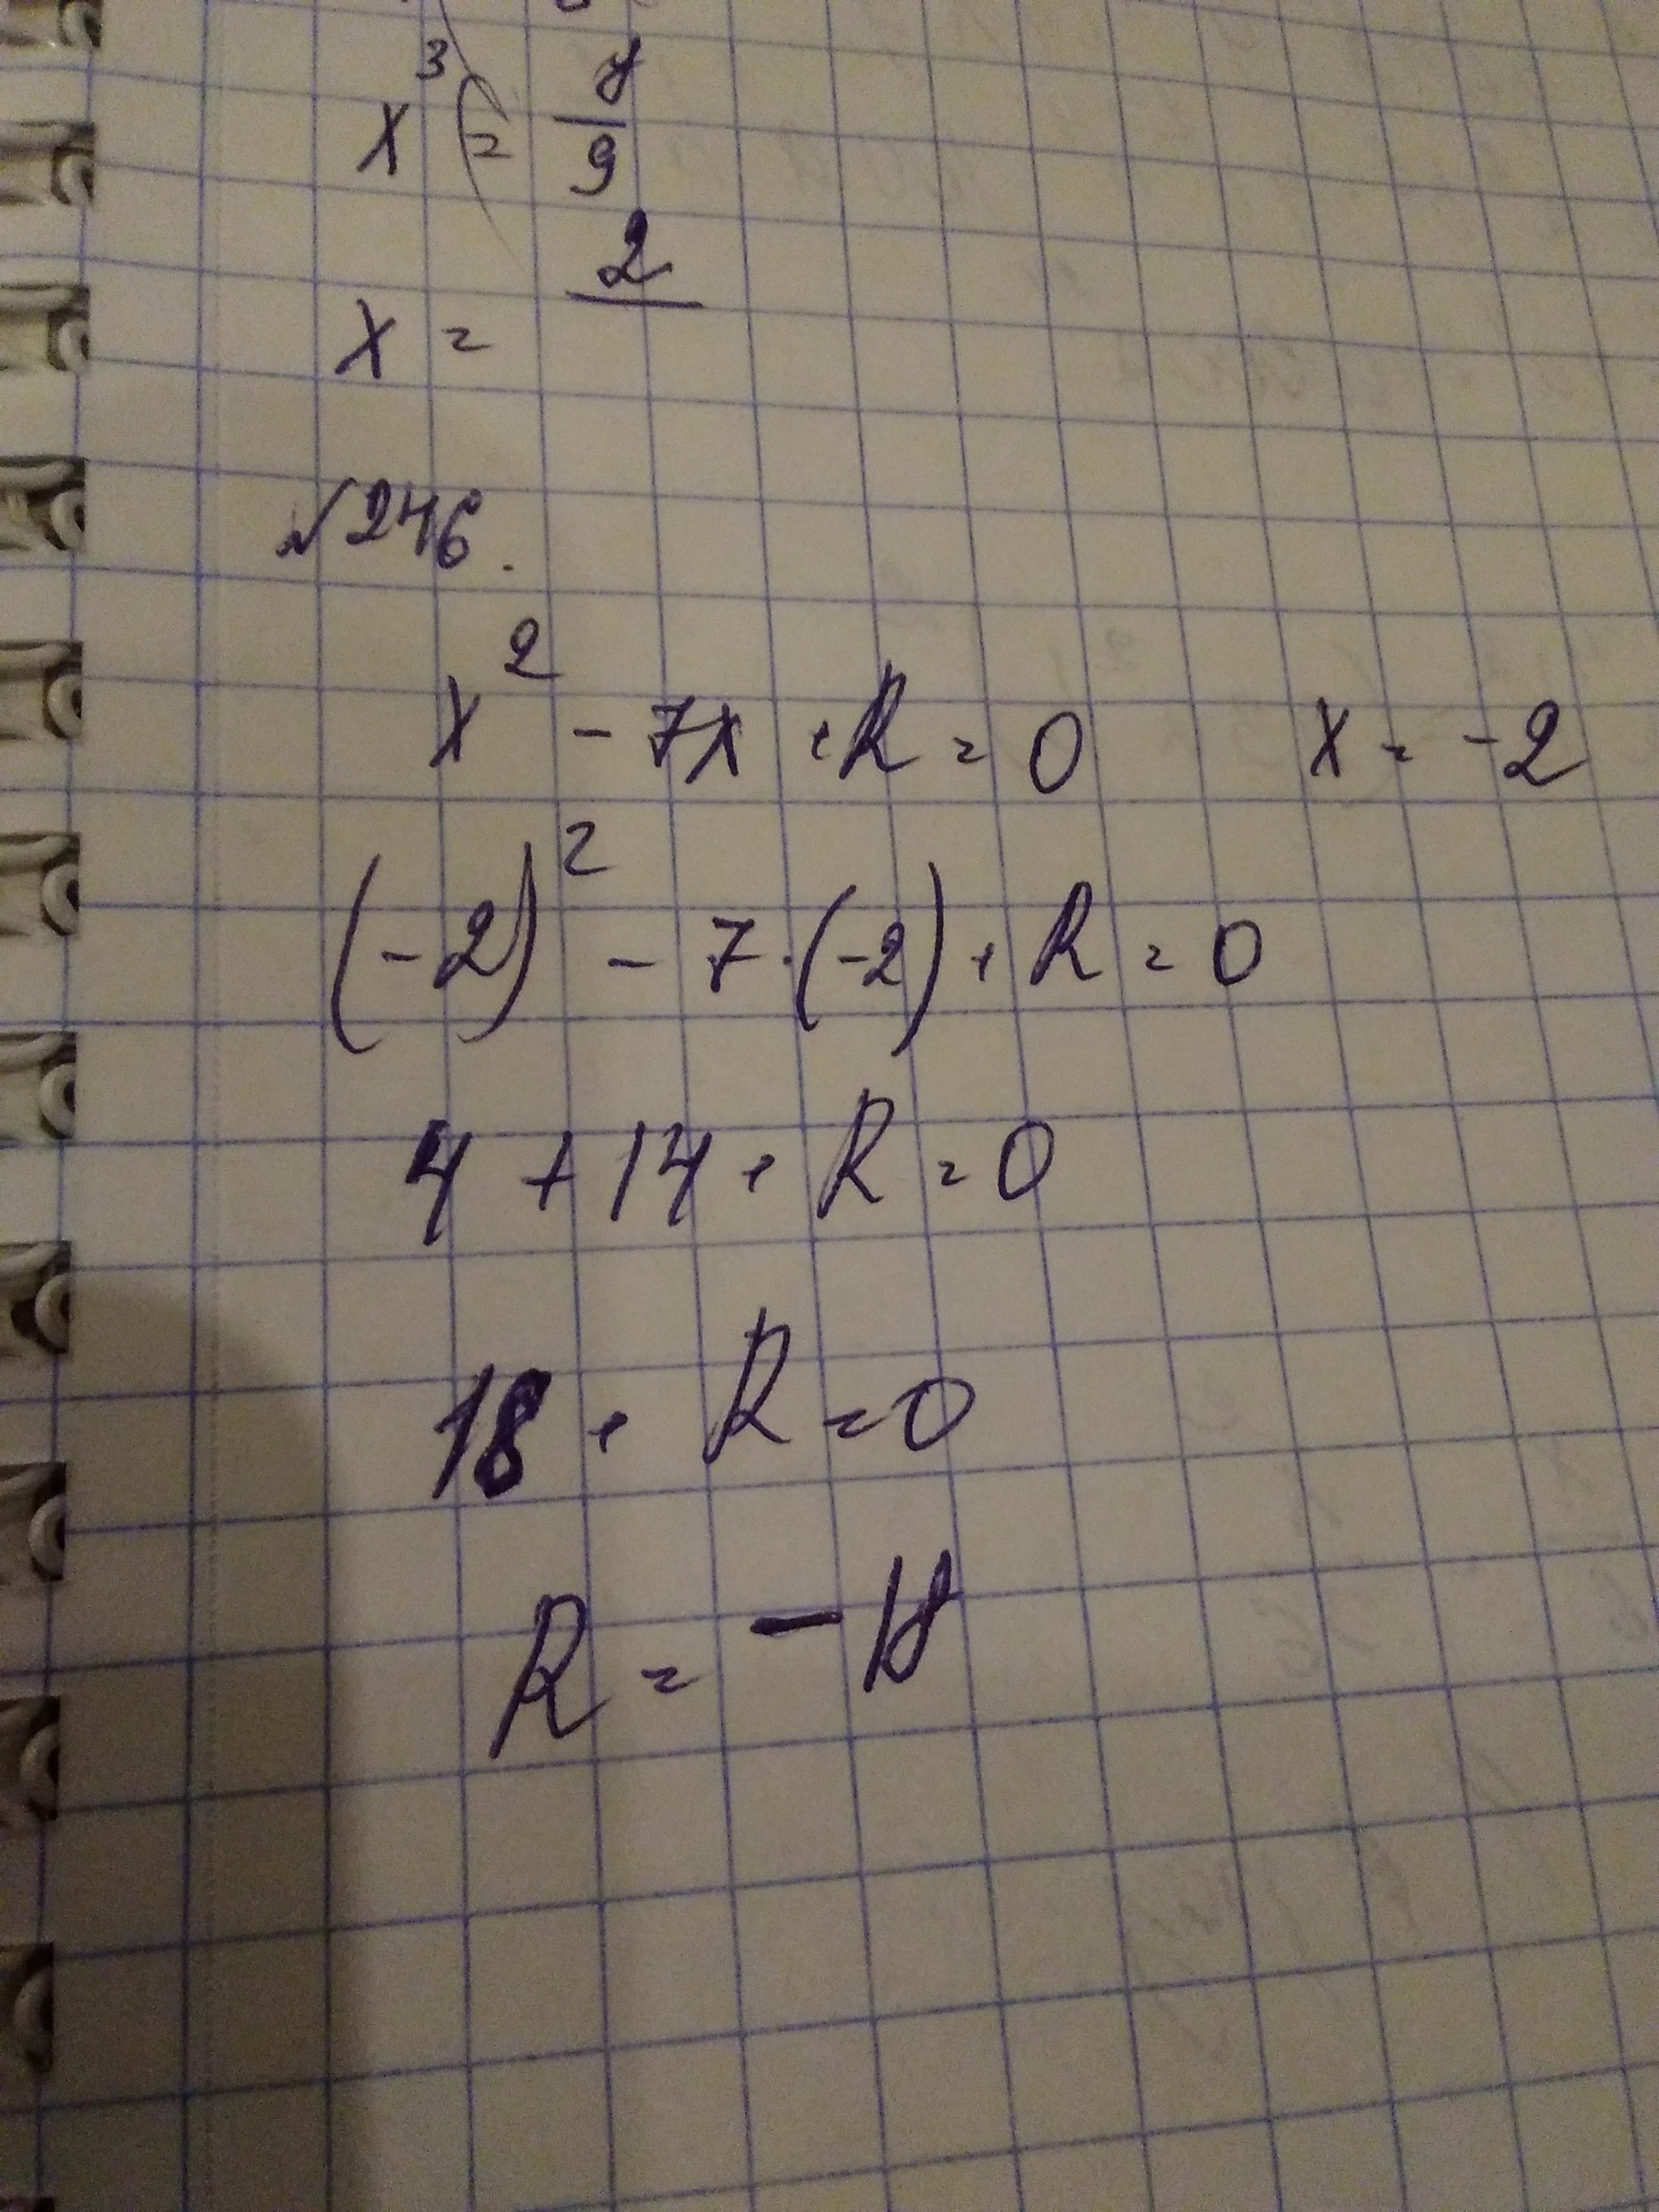 x³ = 8/9
x = 2/
№246.
x² - 7x + R = 0 x = -2
(-2)² - 7·(-2) + R = 0
4 + 14 + R = 0
18 + R = 0
R = -18